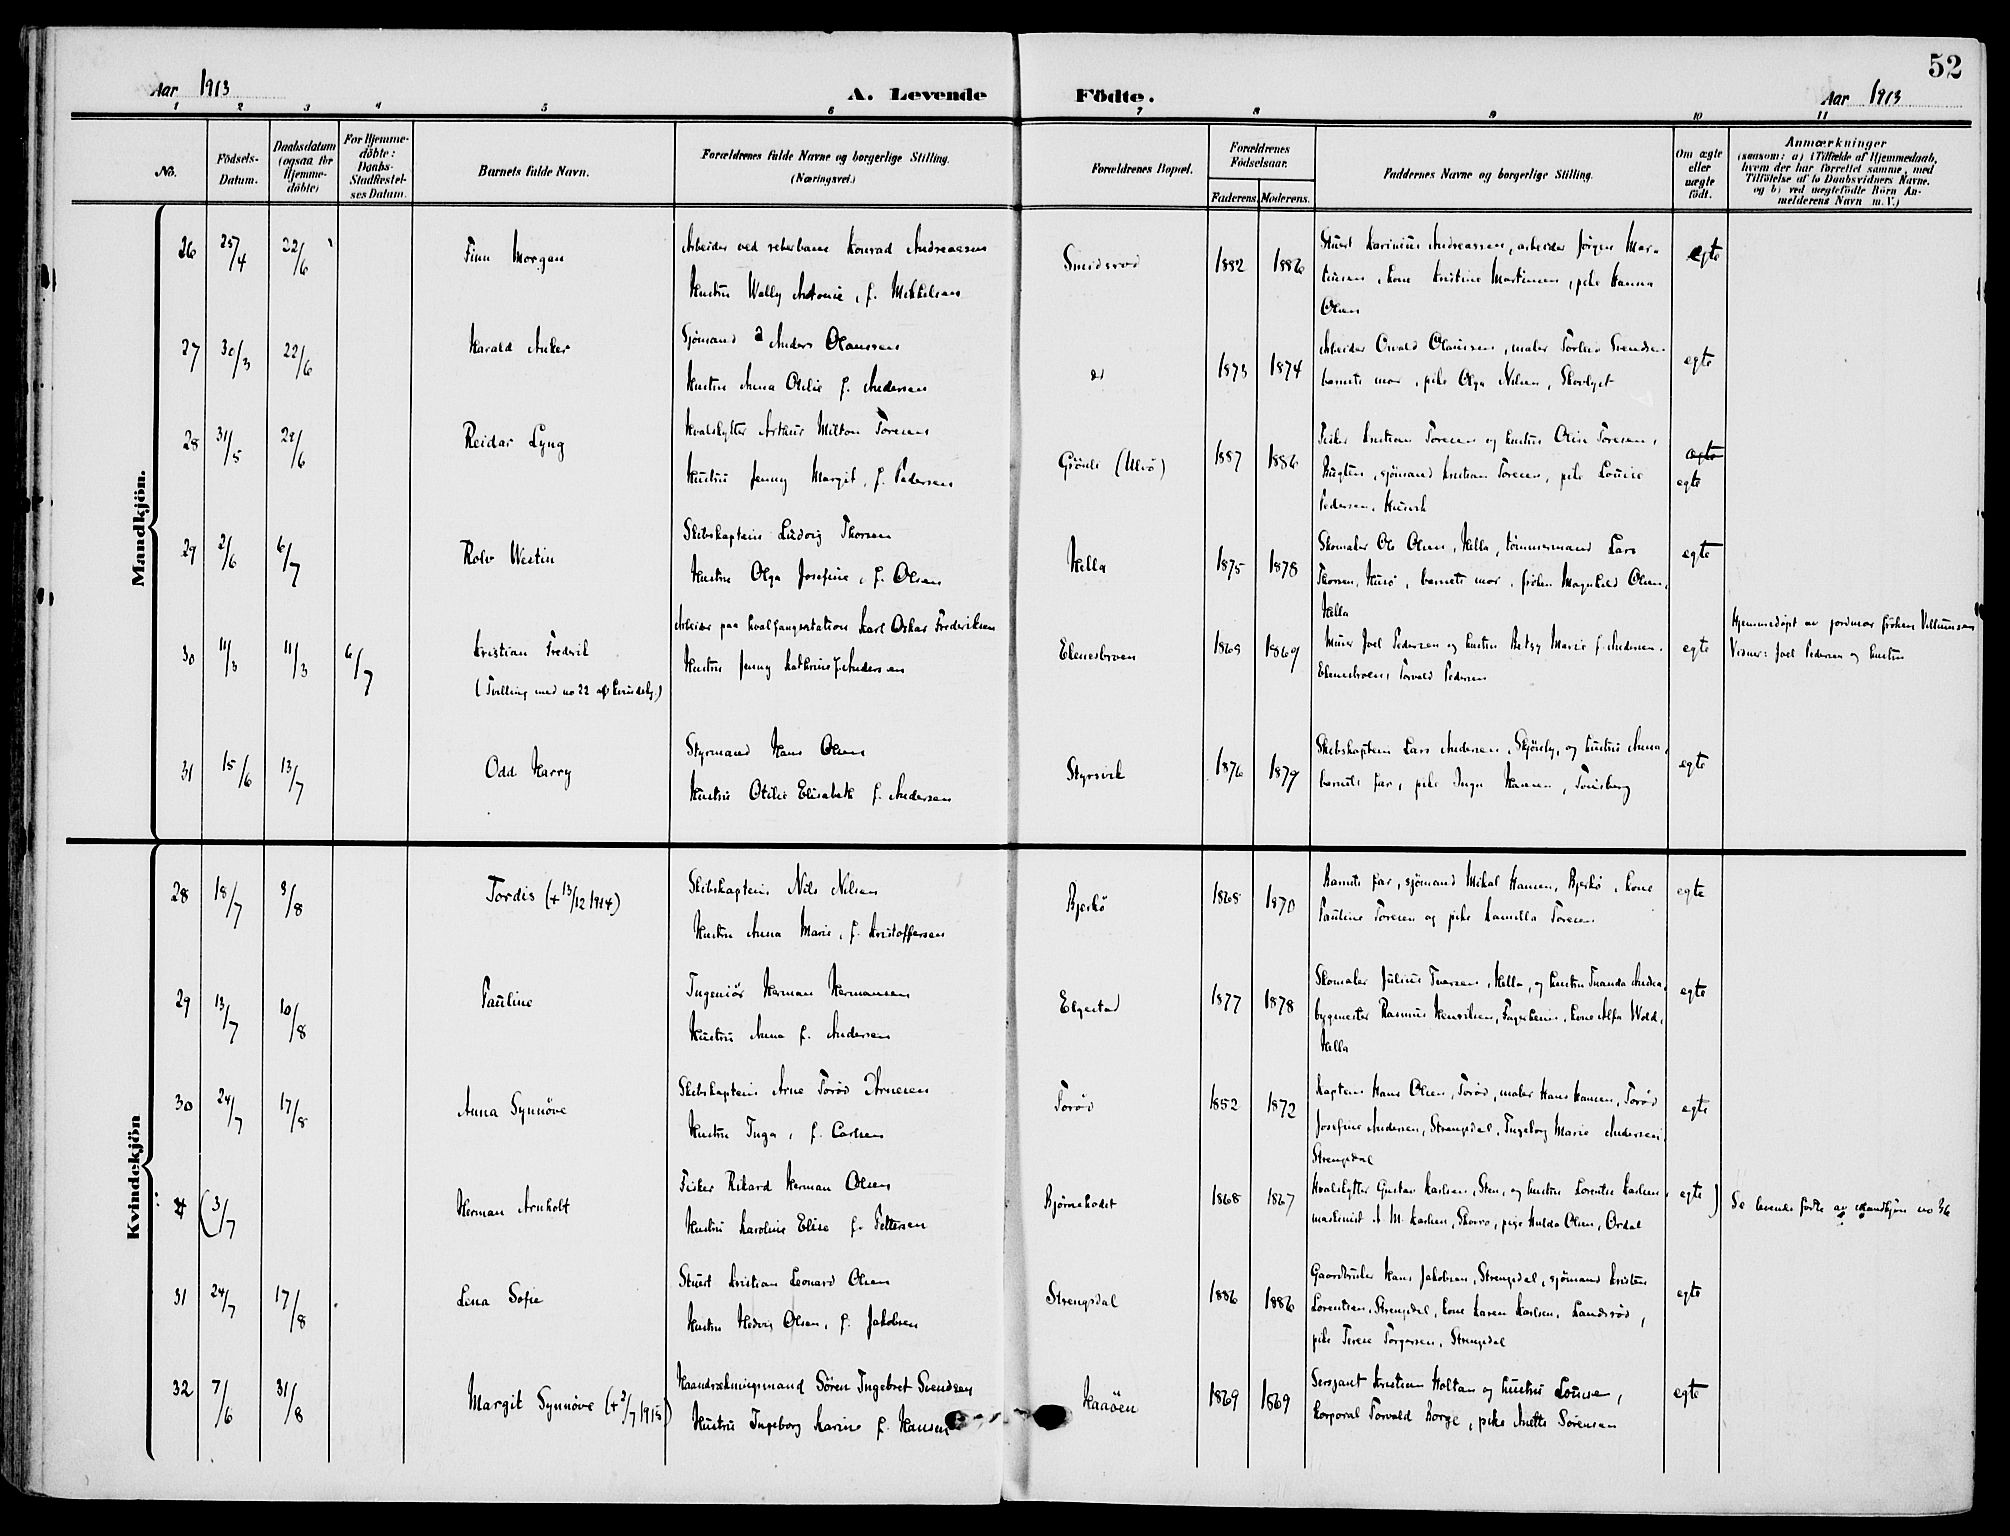 52
Aar 1913
A. Levende Födte.
Aar 1913
1 2 3 4 5 6 7 8 9 10 11
No.
Födsels-Datum.
Daabsdatum (ogsaa for Hjemme-döbte)
For Hjemme-döbte: Daabs-Stadfæstel-ses Datum.
Barnets fulde Navn.
Forældrenes fulde Navne og borgerlige Stilling.
(Næringsvei.)
Forældrenes Bopæl.
Forældrenes Födselsaar.
Faderens. Moderens.
Faddernes Navne og borgerlige Stilling.
Om ægte eller uægte födt.
Anmærkninger
(saasom: a) i Tilfælde af Hjemmedaab, hvem der har forrettet samme, med Tilföielse af to Daabsvidners Navne. og b) ved uægtefödte Börn An-melderens Navn m. V.)
Mandkjön.
26 25/4 22/6 Finn Morgan
Arbeider ved reberbane Konrad Andreassen
Hustru Wally Antonie, f. Mikkelsen
Smidsrød 1882 1886
Stuert Karinius Andreassen, arbeider Jörgen Mar-
tinsen, kone Kristine Martinsen, pike Hanna
Olsen
egte
27 30/3 22/6 Harald Anker
Sjömand Anders Olaussen
Hustru Anna Otilie f. Andersen
1873 1874
Arbeider Osvald Olaussen, maler Torleif Svendsen
barnets mor, pike Olga Nilsen,
egte
28 31/5 29/6 Reidar Lyng
Hvalskytter Arthur Milton Toresen
Hustru Jenny Margit, f. Pedersen
1887 1886
Fisker Kristian Toresen og hustru Olise Toresen,
Bugten, sjömand Kristian Toresen, pike Louise
Pedersen,
egte
egte
29 2/6 6/7 Rolv Westin
Skibskaptein Ludvig Thorsen
Hustru Olga Josefine, f. Olsen
Hella 1875 1878
Skomaker Ole Olsen, Hella, tömmermand Lars
Thorsen, Husö, barnets mor, fröken Magnhild Olsen,
Hella
egte
30 11/3 11/3 6/7 Kristian Frederik
(Tvilling med no 22 af kvindekj.)
Arbeider paa hvalfangerstation Karl Oskar Frederiksen
Hustru Jenny Kathrine f. Andersen
Ekenesbroen 1869 1869
Murer Joel Pedersen og hustru Betsy Marie f. Andersen.
Ekenesbroen, Torvald Pedersen
egte
Hjemmedöpt av jordmor fröken Villumsen
Vidner: Joel Pedersen og hustru
31 15/6 13/7 Odd Harry
Styrmand Hans Olsen
Hustru Otilie Elisabeth f. Andersen
Styrsvik 1876 1879
Skibskaptein Lars Andersen, og hustru Anna,
barnets far, pike Inga Hansen, Tönsberg
egte
Kvindekjön
28 18/7 3/8 Tordis (+ 13/12 1914)
Skibskaptein Nils Nilsen
Hustru Anna Marie, f. Kristoffersen
Bjerkö 1868 1870
Barnets far, sjömand Mikal Hansen, Bjerkö, kone
Pauline Toresen og pike Kamilla Toresen
egte
29 13/7 10/8 Pauline
Ingeniör Herman Hermansen
Hustru Anna f. Andersen
Elgestad 1877 1878
Skomaker Julius Iversen, Hella, og hustru
bygmester Rasmus Henriksen, Fagerheim, kone Alfa Wold,
Hella
egte
30 24/7 17/8 Anna Synnöve
Skibskaptein Arne Toröd Arnesen
Hustru Inga, f. Carlsen
Toröd 1852 1872
Kaptein Hans Olsen, Toröd, maler Hans Hansen, Toröd
Josefine Andersen, Strengsdal, Ingeborg Marie Andersen,
Strengsdal
egte
(3/7 Herman Arnholt
Fisker Rikard Herman Olsen
Hustru Karoline Elise f. Pettersen
Bjørnehodet 1868 1867
Hvalskytter Gustav Karlsen, Sten, og hustru Lorentse Karlsen,
maskinist A. M. Karlsen, pige Hulda Olsen, Ordal
egte)
Se levende födte av mandkjön no 36
31 24/7 17/8 Lina Sofie
Stuert Kristian Leonard Olsen
Hustru Hedvig Olsen, f. Jakobsen
Strengsdal 1886 1886
Gaardbruker Hans Jakobsen, Strengsdal, sjömand Kristian
Lorentsen, Strengsdal, kone Karen Karlsen, Landsröd,
pike Terese Torgersen, Strengsdal
egte
32 7/6 31/8 Margit Synnöve (+ 2/7 1915)
Haandrækningsmand Sören Ingebret Svendsen
Hustru Ingeborg Karine f. Hansen
Haaöen 1869 1869
Sersjant Kristian Holtan og hustru Louise,
korporal Torvald Borge, pike Anette Sörensen
egte